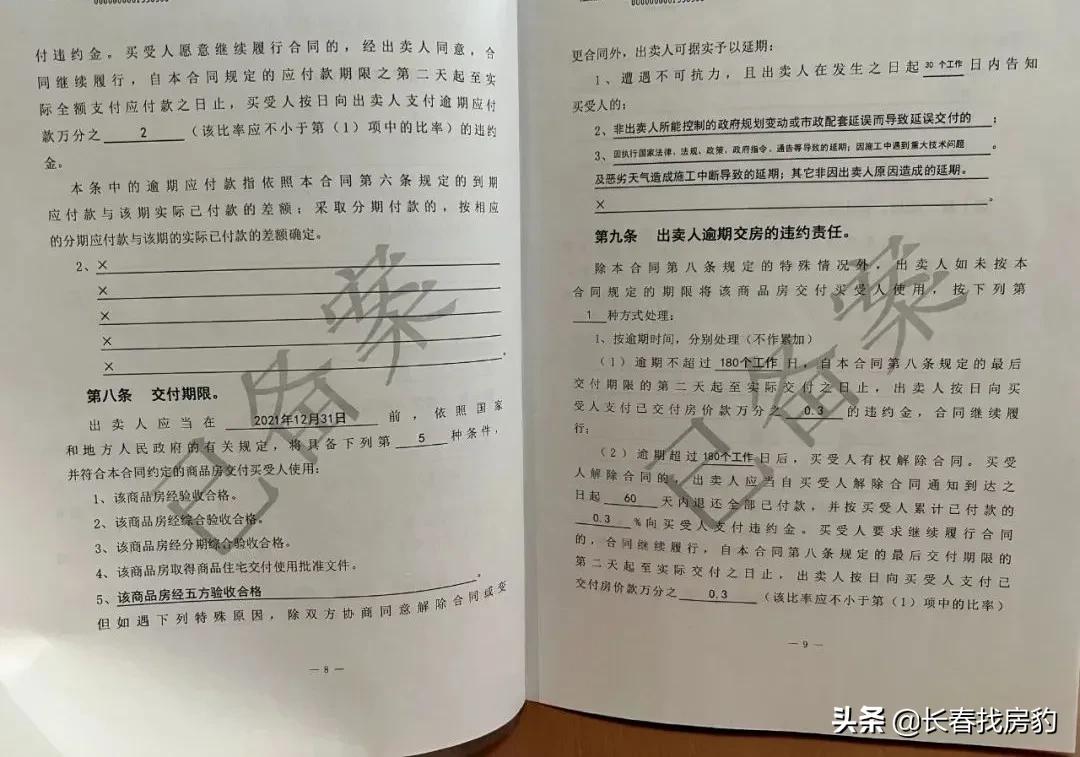 付违约金。买受人愿意继续履行合同的，经出卖人同意，合
同继续履行，自本合同规定的应付款期限之第二天起至实
际全额支付应付款之日止，买受人按日向出卖人支付逾期应付
款万分之 2 （该比率应不小于第（1）项中的比率）的违约
金。
本条中的逾期应付款指依照本合同第六条规定的到期
应付款与该期实际已付款的差额；采取分期付款的，按相应
的分期应付款与该期的实际已付款的差额确定。
2、×
×
×
×
×。
第八条 交付期限。
出卖人应当在 2021年12月31日 前，依照国家
和地方人民政府的有关规定，将具备下列第 5 种条件，
并符合本合同约定的商品房交付买受人使用：
1、该商品房经验收合格。
2、该商品房经综合验收合格。
3、该商品房经分期综合验收合格。
4、该商品房取得商品住宅交付使用批准文件。
5、该商品房经五方验收合格。
但如遇下列特殊原因，除双方协商同意解除合同或变
— 8 —
已备案
更合同外，出卖人可据实予以延期：
1、遭遇不可抗力，且出卖人在发生之日起 30 个工作 日内告知
买受人的；
2、非出卖人所能控制的政府规划变动或市政配套延误而导致延误交付的；
3、因执行国家法律、法规、政策、政府指令、通告等导致的延期；因施工中遇到重大技术问题。
及恶劣天气造成施工中断导致的延期；其它非因出卖人原因造成的延期。
×。
第九条 出卖人逾期交房的违约责任。
除本合同第八条规定的特殊情况外，出卖人如未按本
合同规定的期限将该商品房交付买受人使用，按下列第
1 种方式处理：
1、按逾期时间，分别处理（不作累加）
（1）逾期不超过 180个工作 日，自本合同第八条规定的最后
交付期限的第二天起至实际交付之日止，出卖人按日向买
受人支付已交付房价款万分之 0.3 的违约金，合同继续履
行；
（2）逾期超过 180个工作 日后，买受人有权解除合同。买受
人解除合同的，出卖人应当自买受人解除合同通知到达之
日起 60 天内退还全部已付款，并按买受人累计已付款的
0.3 %向买受人支付违约金。买受人要求继续履行合同
的，合同继续履行，自本合同第八条规定的最后交付期限的
第二天起至实际交付之日止，出卖人按日向买受人支付已
交付房价款万分之 0.3 （该比率应不小于第（1）项中的比率）
— 9 —
已备案
头条 @长春找房豹